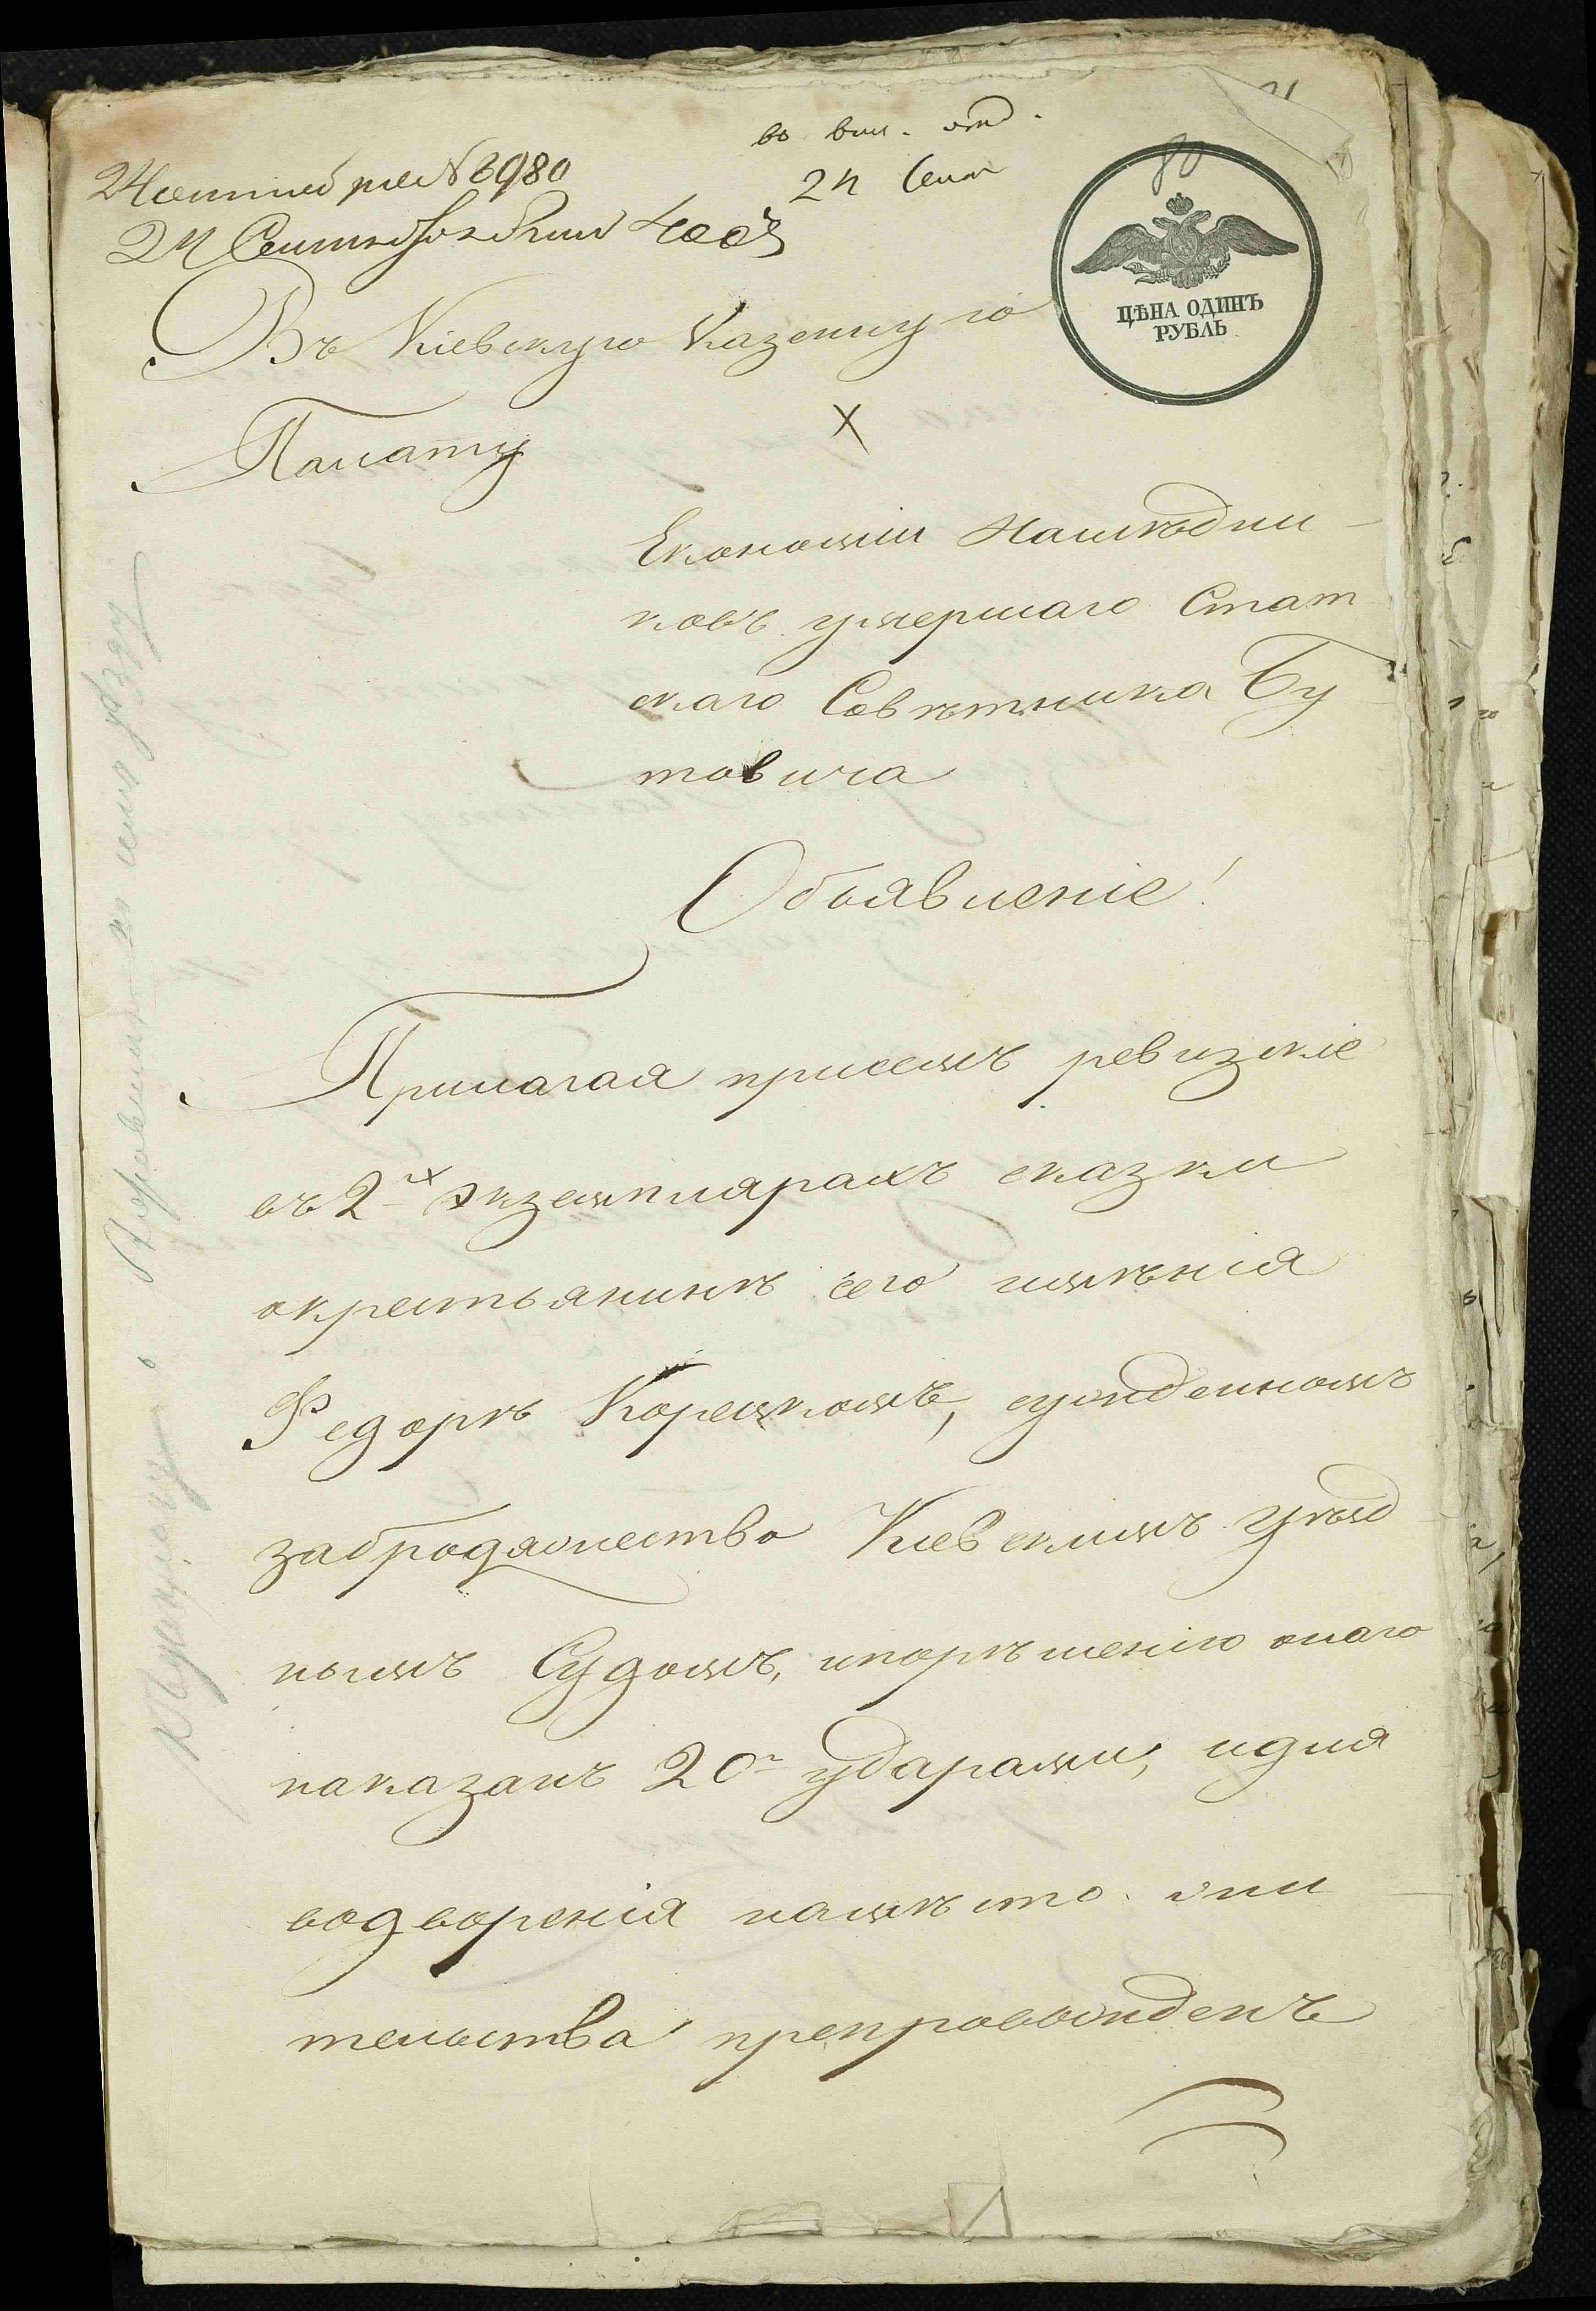 во вып. отд.
24 Сент
24 сентября №6980
24 Сентября
80
ЦѢНА ОДИНЪ
РУБЛЬ
Въ Кіевскую Казенную
Палату
Економіи Наслѣдни-
ковъ умершаго Стат
скаго Совѣтника Бу
товича
Объявленіе!
Прилагая присемъ ревизскіе
въ 2-х экземплярахъ сказки
окрестьянинѣ сего имѣнія
Федорѣ Корецкомъ, сужденномъ
забродяжество Кіевскимъ уѣзд
нымъ Судомъ, ипорѣшенію онаго
наказанъ 20- ударами, идля
водворенія намѣсто жи
тельства препровожденъ